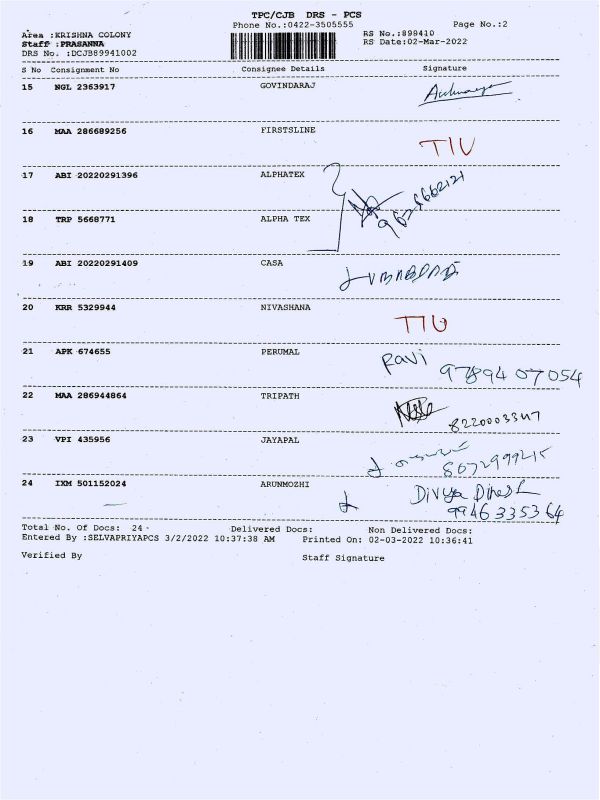 TPC/CJB DRS - PCS
Phone No.:0422-3505555 Page No.:2
Area :KRISHNA COLONY RS No.:899410
Staff :PRASANNA RS Date:02-Mar-2022
DRS No. :DCJB89941002
S No Consignment No Consignee Details Signature
15 NGL 2363917 GOVINDARAJ
16 MAA 286689256 FIRSTSLINE
TIU
17 ABI 20220291396 ALPHATEX
18 TRP 5668771 ALPHA TEX
19 ABI 20220291409 CASA
20 KRR 5329944 NIVASHANA
TIU
21 APK 674655 PERUMAL Ravi
9789407054
22 MAA 286944864 TRIPATH
8220003347
23 VPI 435956 JAYAPAL
24 IXM 501152024 ARUNMOZHI Divya Dinesh
9946335364
Total No. Of Docs: 24 Delivered Docs: Non Delivered Docs:
Entered By :SELVAPRIYAPCS 3/2/2022 10:37:38 AM Printed On: 02-03-2022 10:36:41
Verified By Staff Signature